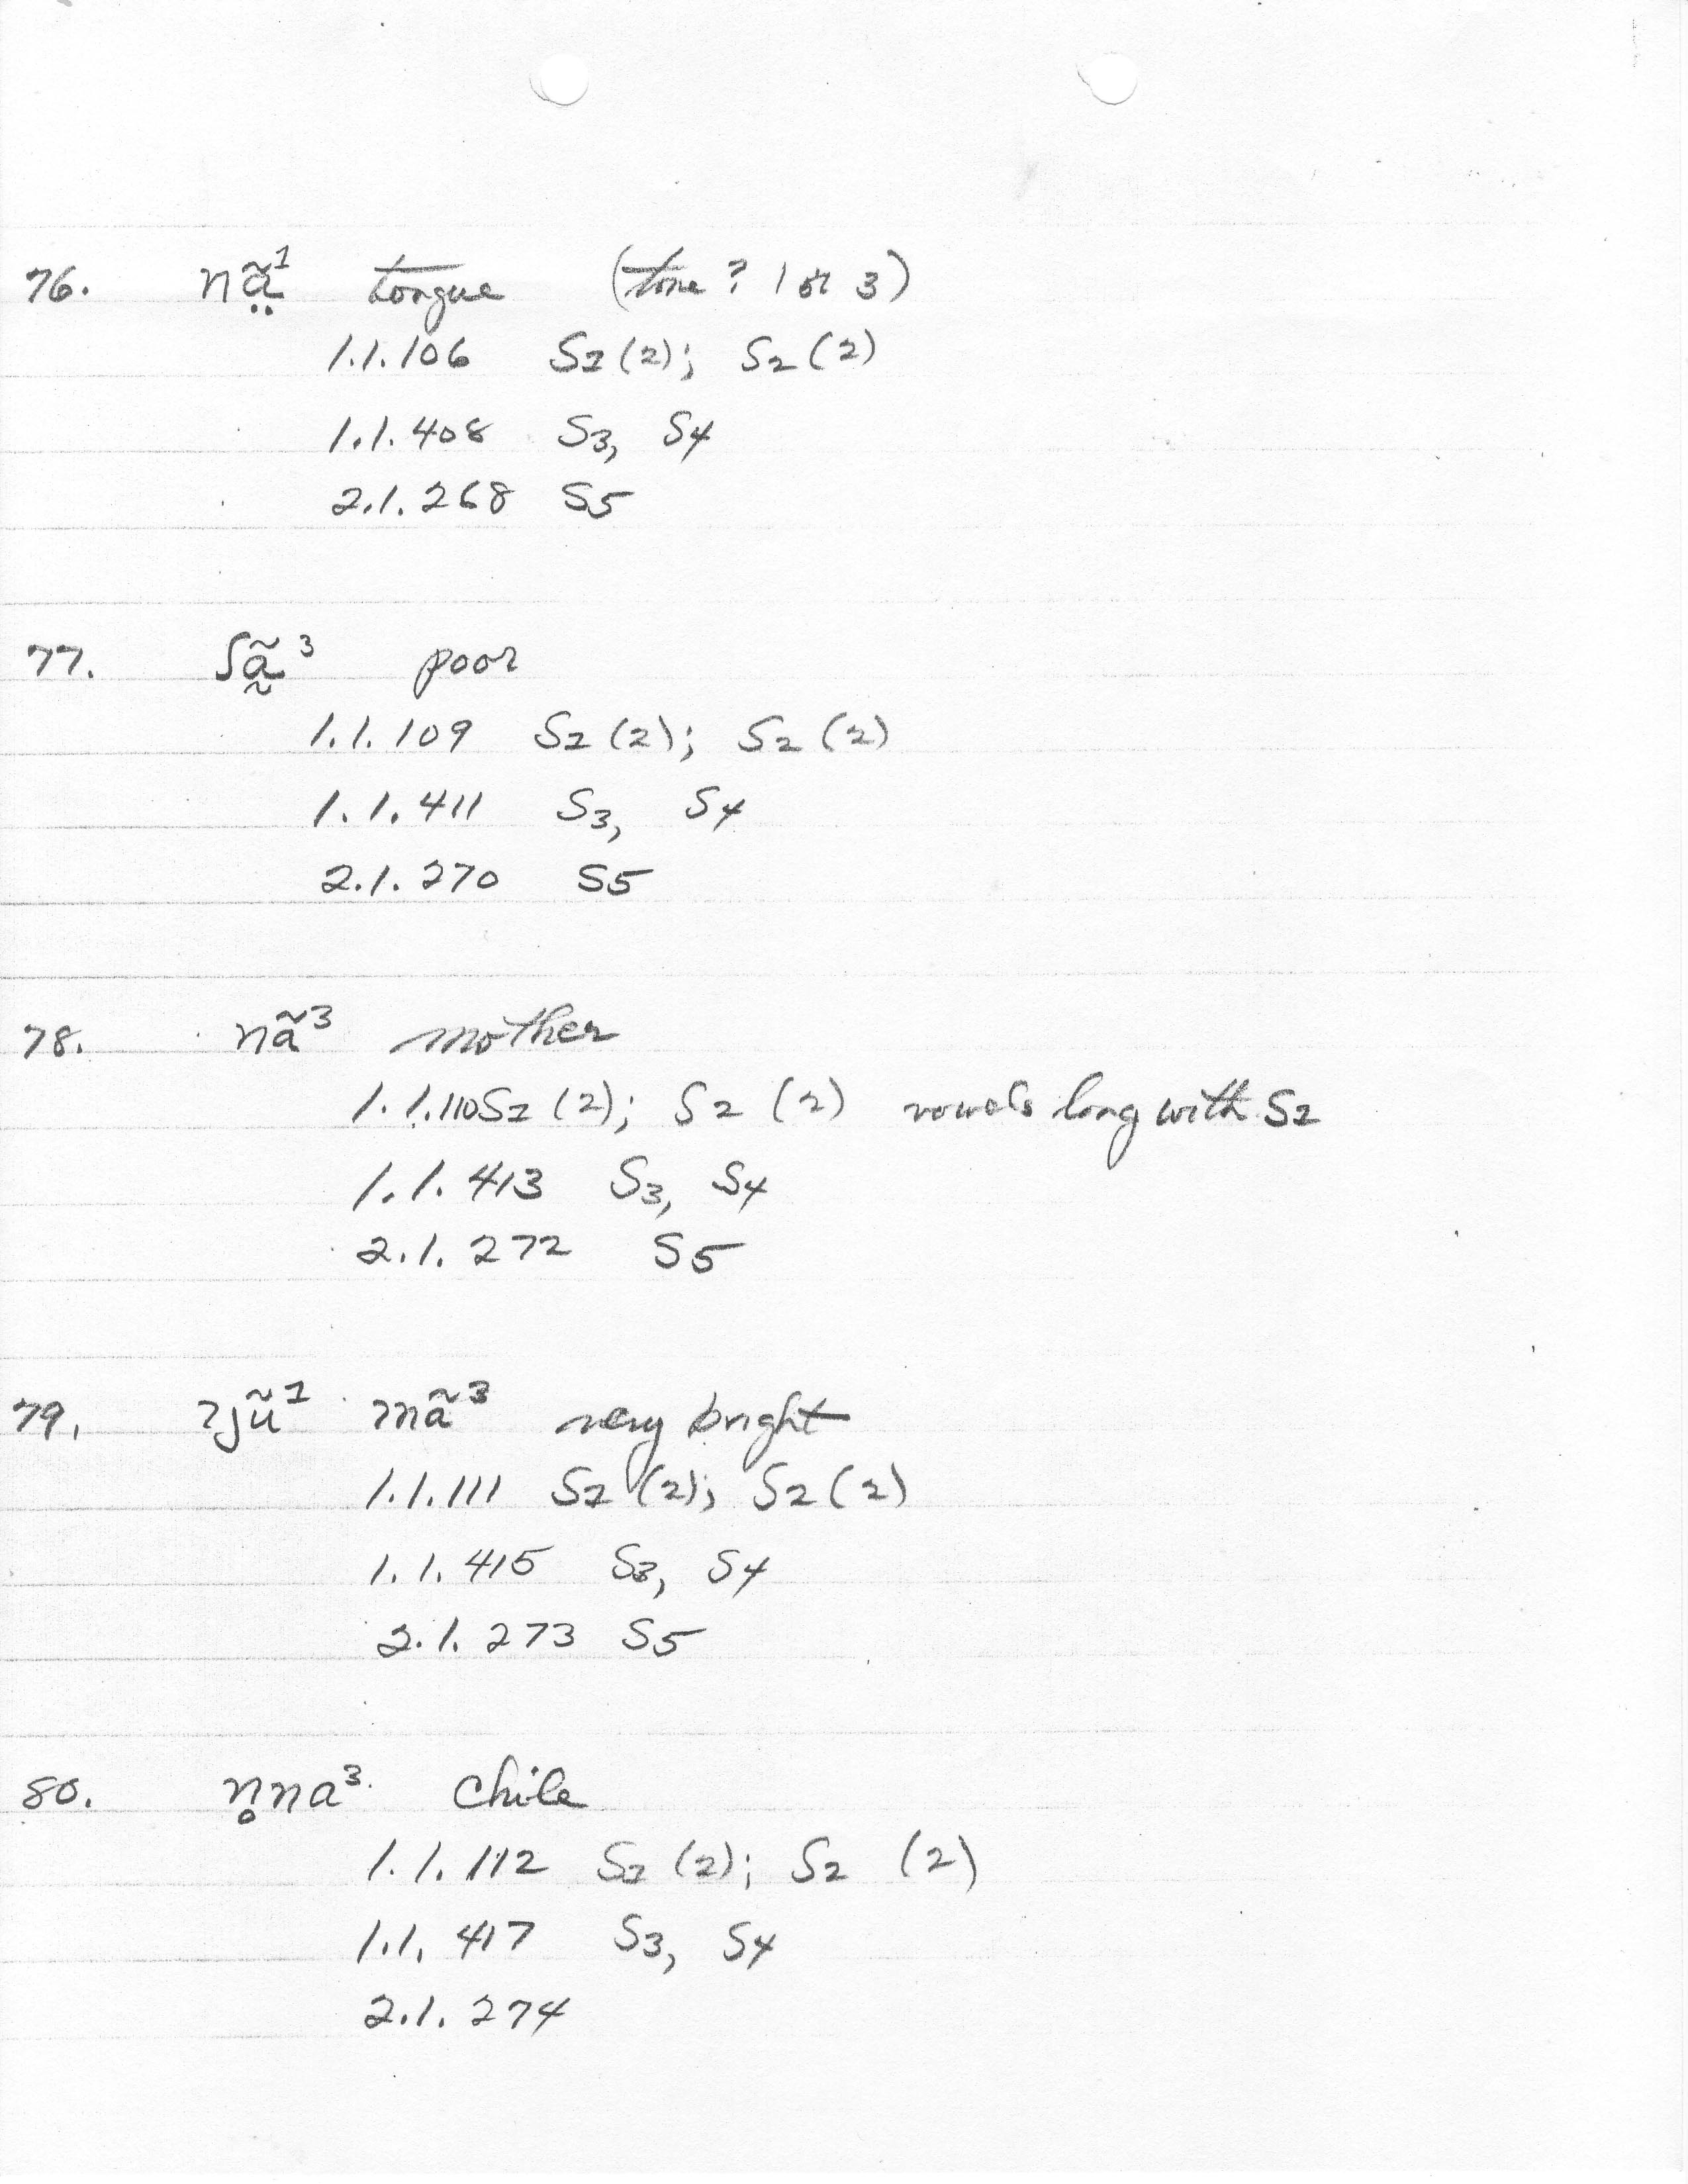 76. nã̤¹ tongue (tone? 1 or 3)
1.1.106 S1(2); S2(2)
1.1.408 S3, S4
2.1.268 S5
77. ʃã̰³ poor
1.1.109 S1(2); S2(2)
1.1.411 S3, S4
2.1.270 S5
78. nã³ mother
1.1.110 S1(2); S2(2) vowels long with S1
1.1.413 S3, S4
2.1.272 S5
79. ʔjũ¹ mã³ very bright
1.1.111 S1(2); S2(2)
1.1.415 S3, S4
2.1.273 S5
80. n̥na³ chile
1.1.112 S1(2); S2(2)
1.1.417 S3, S4
2.1.274